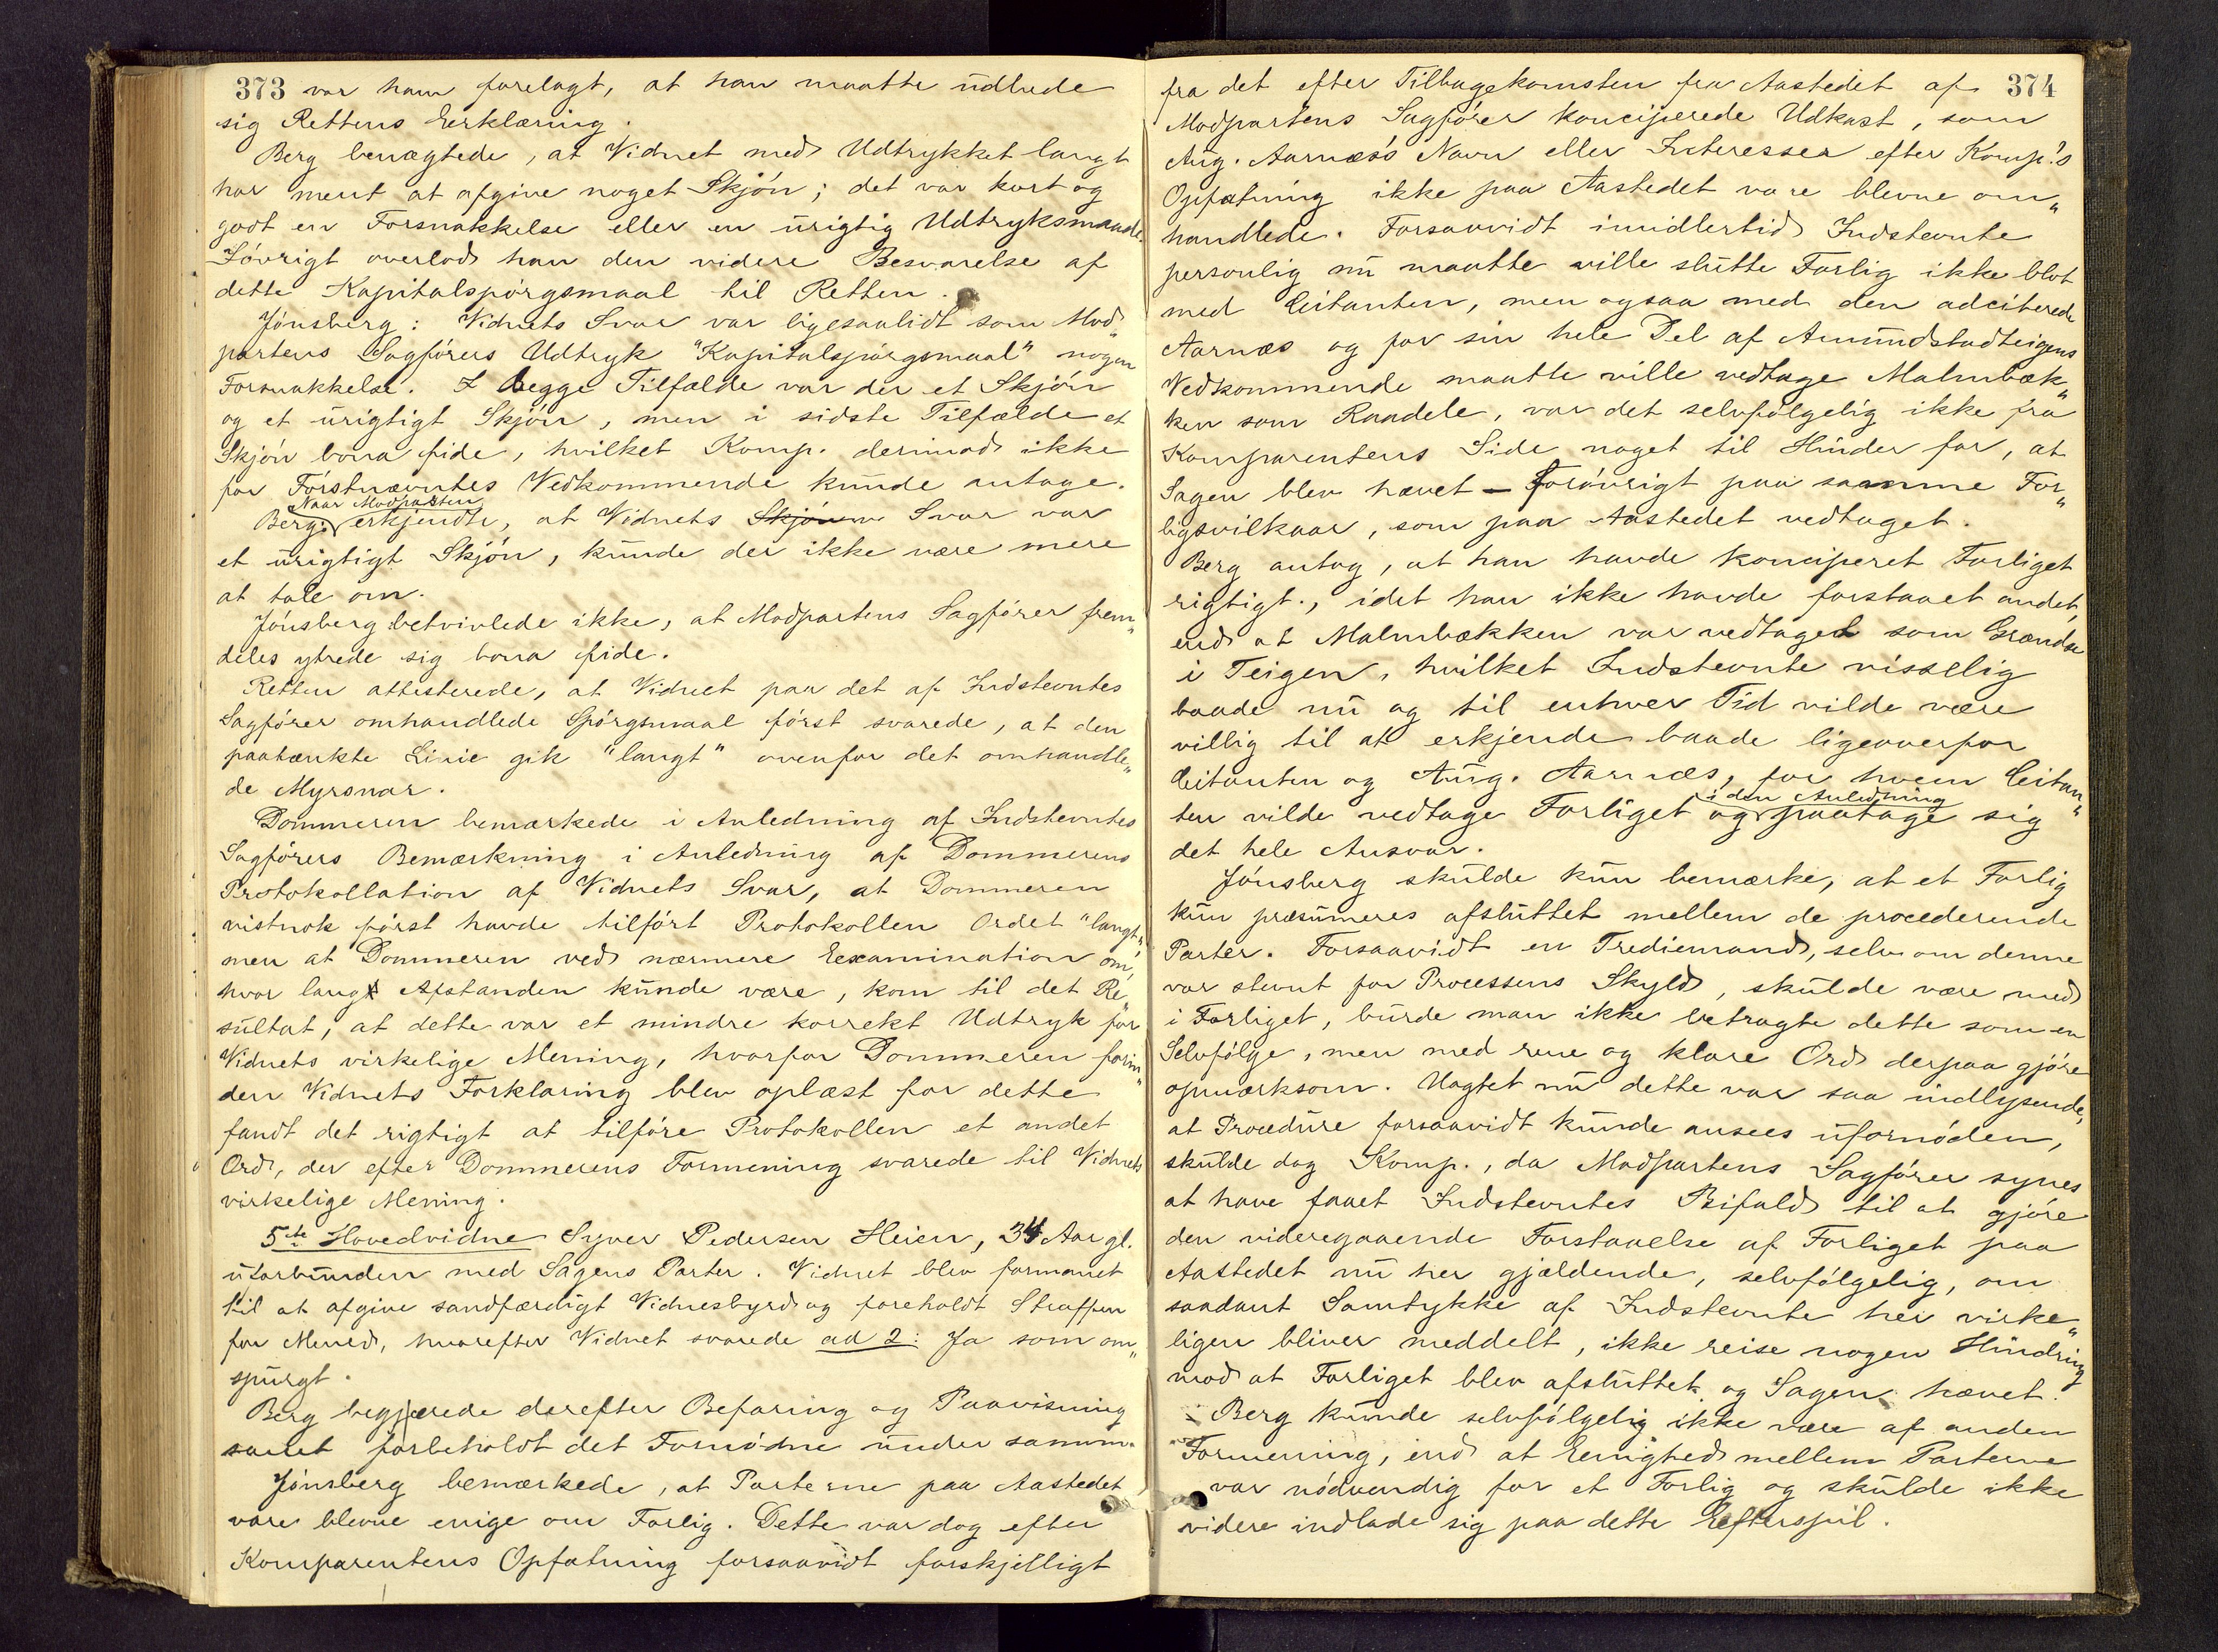 373 var ham forelagt, at han maatte udbede
sig Rettens Erklæring.
Berg benægtede, at Vidnet med Udtrykket langt
har ment at afgive noget Skjön; det var kort og
godt en Forsnakkelse eller en urigtig Udtryksmaade.
Iövrigt overlod han den videre Besvarelse af
dette Kapitalspörgsmaal til Retten.
Jönsberg: Vidnets Svar var ligesaalidt som Mod„
partens Sagförers Udtryk "Kapitalspörgsmaal" nogen
Forsnakkelse. I begge Tilfælde var der et Skjön
og et urigtigt Skjön, men i sidste Tilfælde et
Skjön bona fide, hvilket Komp. derimod ikke
for Förstnævntes Vedkommende kunde antage.
Naar Modparten
Berg: erkjendte, at Vidnets Skjönn Svar var
et urigtigt Skjön, kunde der ikke være mere
at tale om.
Jönsberg betvivlede ikke, at Modpartens Sagförer frem„
deles ytrede sig bona fide.
Retten attesterede, at Vidnet paa det af Indstevntes
Sagförer omhandlede Spörgsmaal först svarede, at den
paatænkte Linie gik "langt" ovenfor det omhandle„
de Myrsnar.
Dommeren bemærkede i Anledning af Indstevntes
Sagförers Bemærkning i Anledning af Dommerens
Protokollation af Vidnets Svar, at Dommeren
vistnok först havde tilfört Protokollen Ordet "langt"
men at Dommeren ved nærmere Examination om,
hvor langt Afstanden kunde være, kom til det Re„
sultat, at dette var et mindre korrekt Udtryk for
Vidnets virkelige Mening, hvorfor Dommeren forin„
den Vidnets Forklaring blev oplæst for dette
fandt det rigtigt at tilföre Protokollen et andet
Ord, der efter Dommerens Formening svarede til Vidnets
virkelige Mening.
5te Hovedvidne Syver Pedersen Heien, 34 Aar gl.
uforbunden med Sagens Parter. Vidnet blev formanet
til at afgive sandfærdigt Vidnesbyrd og foreholdt Straffen
for Mened, hvorefter Vidnet svarede ad 2: Ja som om„
spurgt.
Berg begjærede derefter Befaring og Paavisning
samt forbeholdt det Fornödne under samme.
Jönsberg bemærkede, at Parterne paa Aastedet
vare blevne enige om Forlig. Dette var dog efter
Komparentens Opfatning forsaavidt forskjelligt
fra det efter Tilbagekomsten fra Aastedet af 374
Modpartens Sagförer konciperede Udkast, som
Aug. Aarnæs's Navn eller Interesser efter Komp.'s
Opfatning ikke paa Aastedet vare blevne om„
handlede. Forsaavidt imidlertid Indstevnte
personlig nu maatte ville slutte Forlig ikke blot
med Citanten, men ogsaa med den adciterede
Aarnæs og for sin hele Del af Amundstadteigens
Vedkommende maatte ville vedtage Malmbæk„
ken som Raadele, var det selvfölgelig ikke fra
Komparentens Side noget til Hinder for, at
Sagen blev hævet – Forövrigt paa samme For„
ligsvilkaar, som paa Aastedet vedtaget.
Berg antog, at han havde konciperet Forliget
rigtigt, idet han ikke havde forstaaet andet,
end at Malmbækken var vedtaget som Grændse
i Teigen, hvilket Indstevnte visselig
baade nu og til enhver Tid vilde være
villig til at erkjende baade ligeoverfor
Citanten og Aug. Aarnæs, for hvem Citan„
i den Anledning
ten vilde vedtage Forliget og paatage sig
det hele Ansvar.
Jönsberg skulde kun bemærke, at et Forlig
kun præsumeres afsluttet mellem de procederende
Parter. Forsaavidt en Trediemand, selv om denne
var stevnt for Processens Skyld, skulde være med
i Forliget, burde man ikke betragte dette som en
Selvfölge, men med rene og klare Ord derpaa gjöre
opmærksom. Uagtet nu dette var saa indlysende,
at Procedure forsaavidt kunde ansees ufornöden,
skulde dog Komp., da Modpartens Sagförer synes
at have faaet Indstevntes Bifald til at gjöre
den videregaaende Forstaaelse af Forliget paa
Aastedet nu her gjældende, selvfölgelig, om
saadant Samtykke af Indstevnte her virke„
ligen bliver meddelt, ikke reise nogen Hindring
mod at Forliget blev afsluttet og Sagen hævet.
Berg kunde selvfölgelig ikke være af anden
Formening, end at Enighed mellem Parterne
var nödvendig for et Forlig og skulde ikke
videre indlade sig paa dette Efterspil.